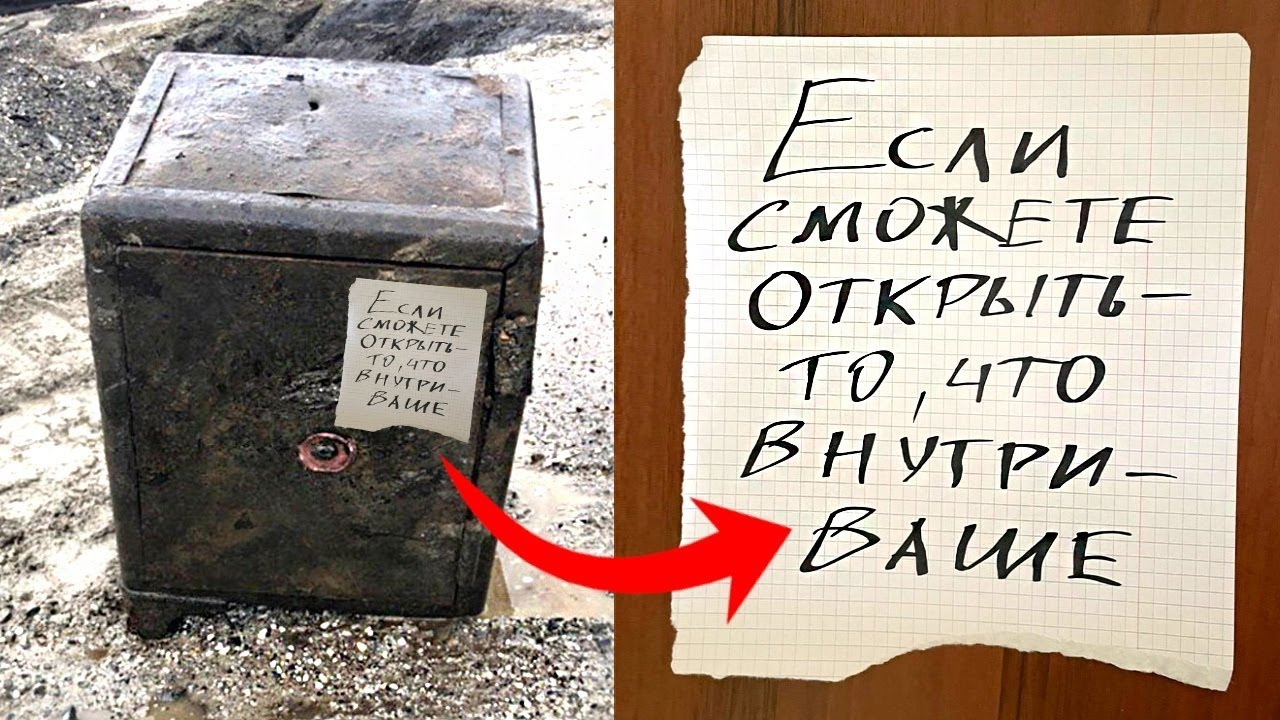 Если
сможете
открыть-
то, что
внутри-
ваше
Если
сможете
открыть-
то, что
внутри-
Ваше